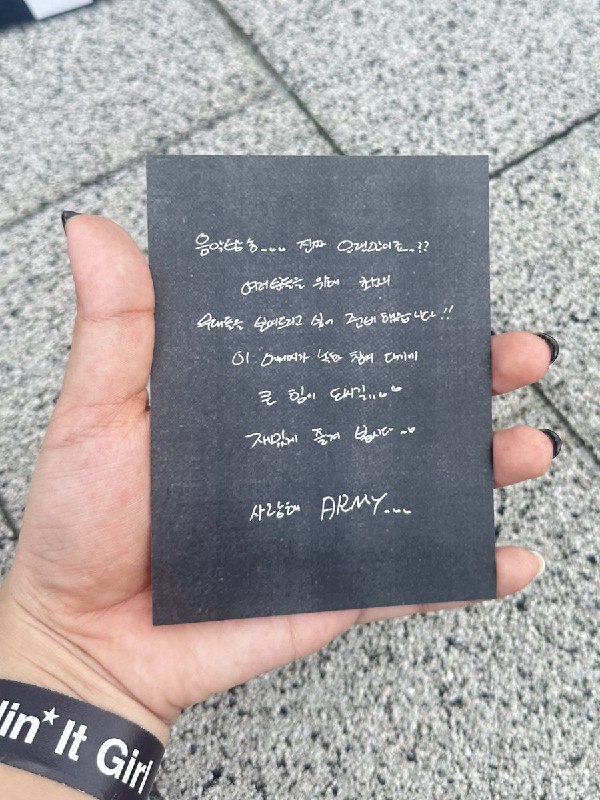 음악방송... 진짜 오랜만이죠..??
여러분들을 위해 최고의
무대들을 보여드리고 싶어 준비 했습니다!!
이 에너지가
큰 힘이 되시길..
재밌게 즐겨 봅시다
사랑해 ARMY...
lin* It Girl